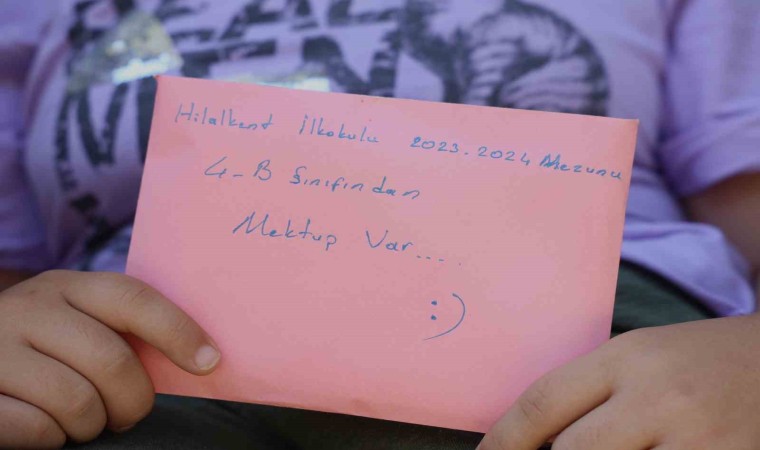 Hilalkent İlkokulu 2023-2024 Mezunu
4-B Sınıfından
Mektup Var.....
:)